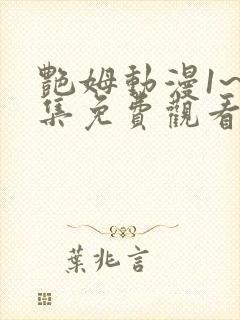 艷姆動漫1~
集免費觀看
葉兆言